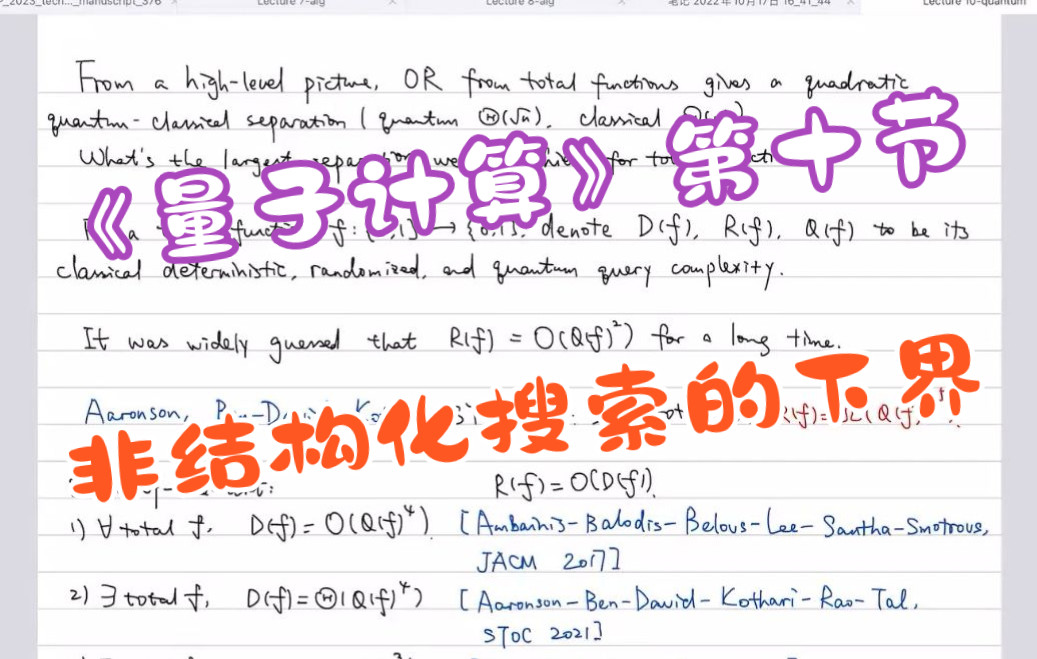 Lecture 7-alg
Lecture 8-alg
笔记 2022年10月17日 16_41_44
Lecture 10-quantum
From a high-level picture, OR from total functions gives a quadratic
quantum-classical separation ( quantum Θ(√n), classical
What's the largest for
《量子计算》第十节
f: denote D(f), R(f), Q(f) to be its
classical deterministic, randomized, and quantum query complexity.
It was widely guessed that R(f) = O(Q(f)²) for a long time.
Aaronson,
非结构化搜索的下界
R(f)=O(D(f)).
1) ∀ total f, D(f)=O(Q(f)⁴) [Ambainis-Balodis-Belovs-Lee-Santha-Smotrovs,
JACM 2017]
2) ∃ total f, D(f)=Θ(Q(f)⁴) [Aaronson-Ben-David-Kothari-Rao-Tal,
STOC 2021]